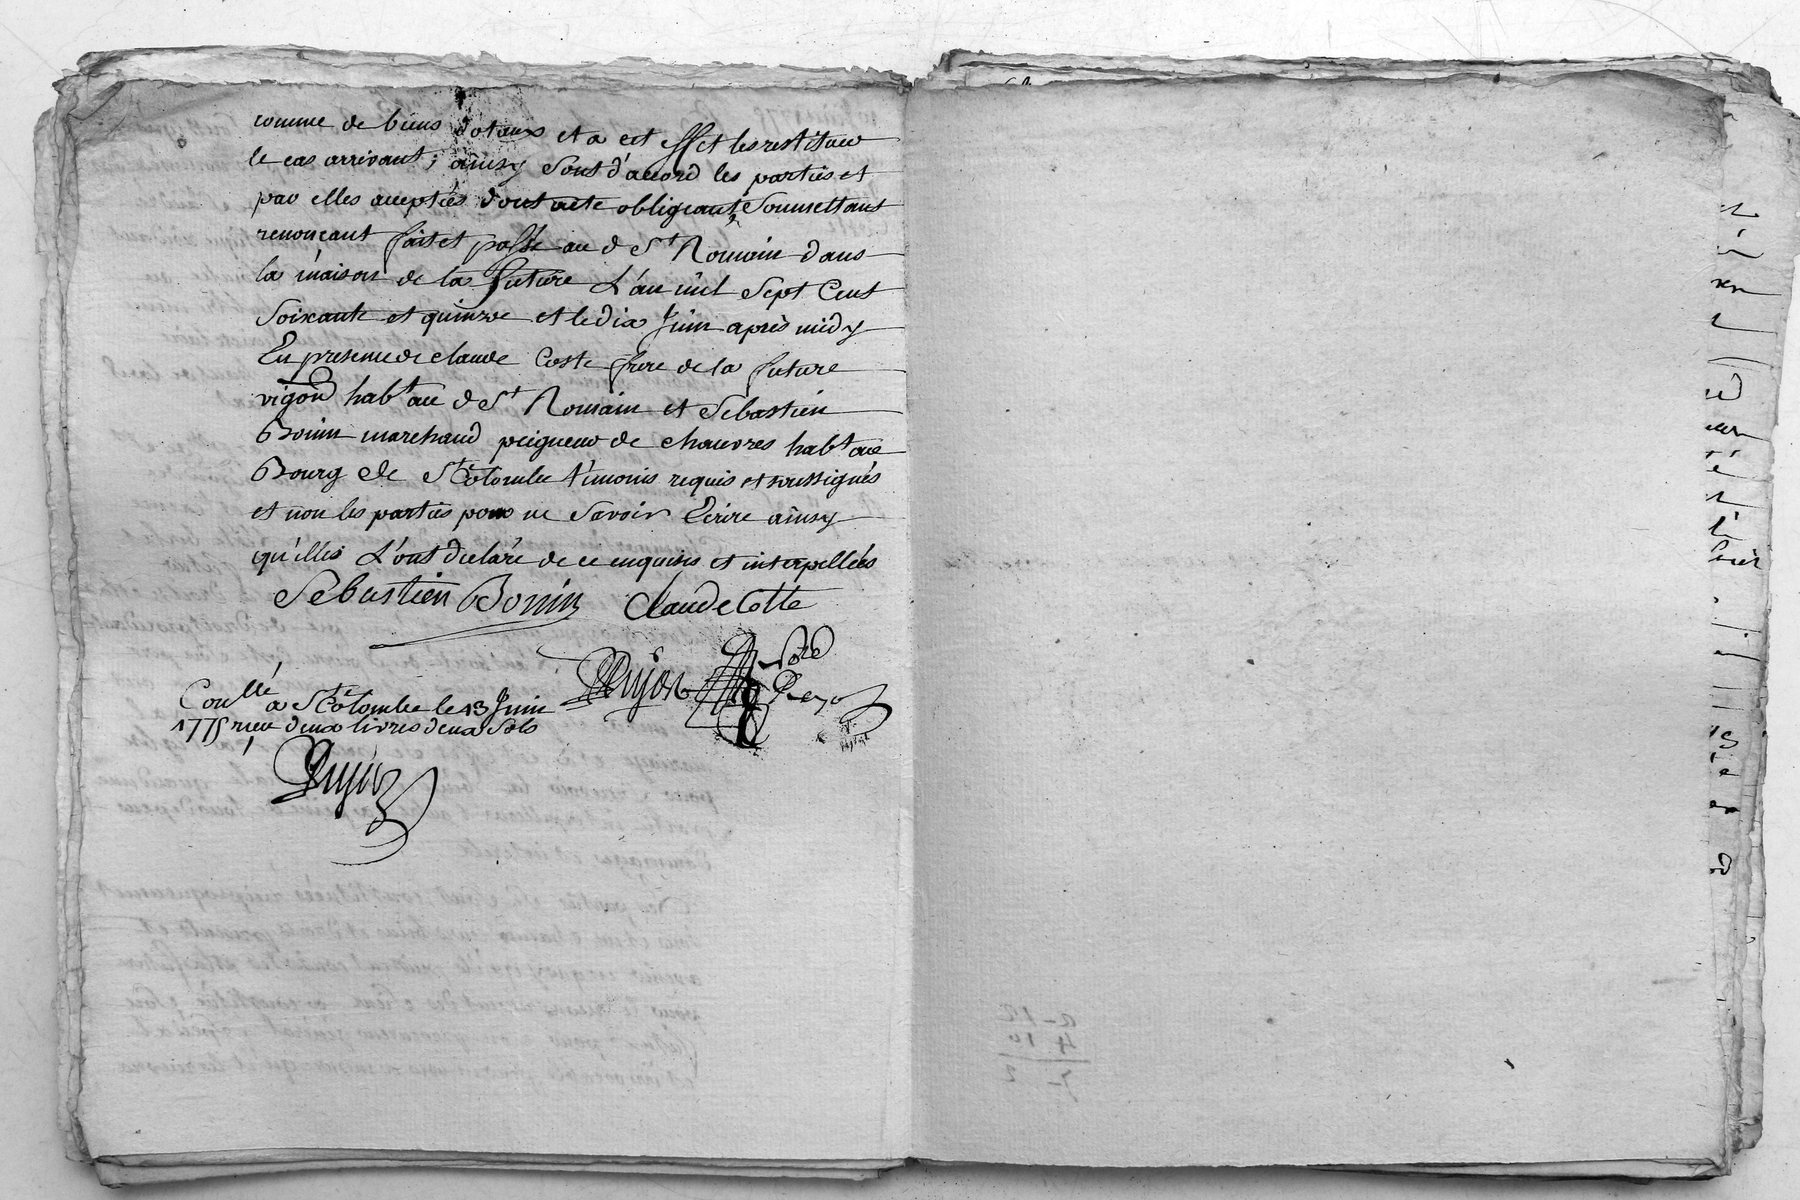 comme de biens dotaux et a cet effet les restituer
le cas arrivant; ainsy sont d'accord les parties et
par elles acceptées dont acte obligeants soumettans
renonçant fait et passé au d St Romain dans
la maison de la future L'an mil sept cent
soixante et quinze et le dix Juin après midy
En presence de claude Coste frere de la future
vigon habt au d St Romain et Sebastien
Bonin marchand peigneur de chanvres habt au
Bourg de Ste Colombe témoins requis et soussignés
et non les parties pour ne sçavoir Ecrire ainsy
qu'elles L'ont declaré de ce enquises et interpellées
Sebastien Bonin Claude Cotte
Dujon
Conllé a Ste Colombe le 13 Juin
1775 reçu deux livres deux sols
Dujon